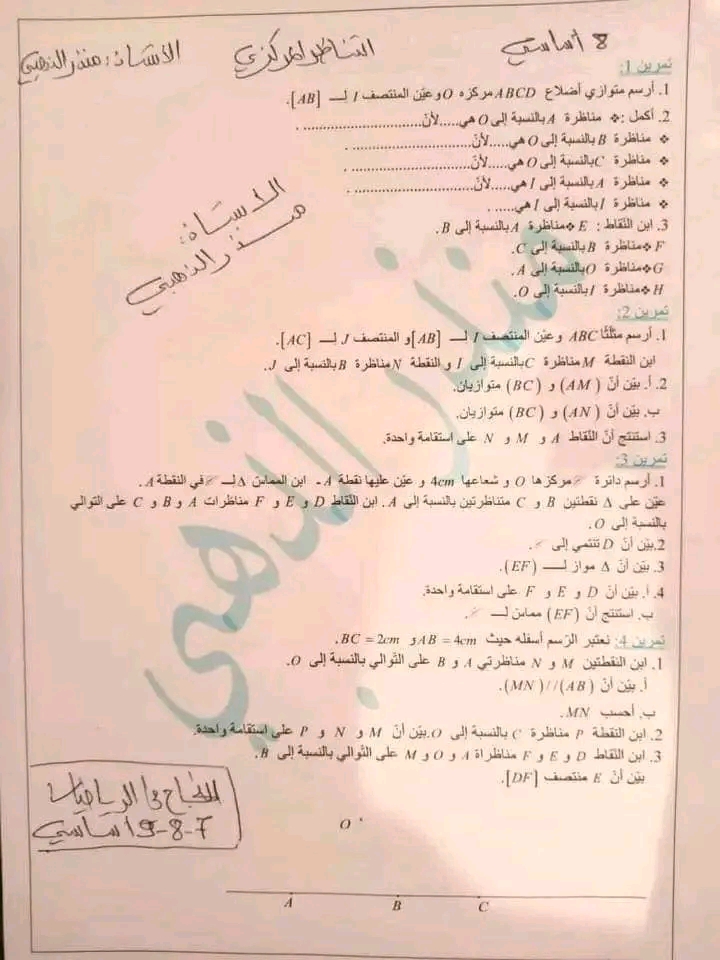 8 أساسي التناظر المركزي الأستاذ: منذر الذهبي
تمرين 1:
1. أرسم متوازي أضلاع ABCD مركزه O وعيّن المنتصف I لـ [AB].
2. أكمل :❖ مناظرة A بالنسبة إلى O هي.....لأنّ........................ .
❖ مناظرة B بالنسبة إلى O هي.....لأنّ........................ .
❖ مناظرة C بالنسبة إلى O هي.....لأنّ........................ .
❖ مناظرة A بالنسبة إلى I هي.....لأنّ........................ .
❖ مناظرة I بالنسبة إلى I هي..... .
3. ابن النّقاط: E❖ مناظرة A بالنسبة إلى B.
F❖ مناظرة B بالنسبة إلى C.
G❖ مناظرة O بالنسبة إلى A.
H❖ مناظرة I بالنسبة إلى O.
الأستاذ:
منذر الذهبي
تمرين 2:
1. أرسم مثلّثا ABC وعيّن المنتصف I لـ [AB] و المنتصف J لـ [AC].
ابن النقطة M مناظرة C بالنسبة إلى I و النقطة N مناظرة B بالنسبة إلى J.
2. أ. بيّن أنّ (AM) و (BC) متوازيان.
ب. بيّن أنّ (AN) و (BC) متوازيان.
3. استنتج أنّ النّقاط A و M و N على استقامة واحدة.
تمرين 3:
1. أرسم دائرة 𝒞 مركزها O و شعاعها 4cm و عيّن عليها نقطة A - ابن المماس Δ لـ 𝒞 في النقطة A.
عيّن على Δ نقطتين B و C متناظرتين بالنسبة إلى A. ابن النّقاط D و E و F مناظرات A و B و C على التوالي
بالنسبة إلى O.
2. بيّن أنّ D تنتمي إلى 𝒞.
3. بيّن أنّ Δ مواز لـ (EF).
4. أ. بيّن أنّ D و E و F على استقامة واحدة.
ب. استنتج أنّ (EF) مماس لـ 𝒞.
تمرين 4: نعتبر الرّسم أسفله حيث AB = 4cm و BC = 2cm.
1. ابن النقطتين M و N مناظرتي A و B على التّوالي بالنسبة إلى O.
أ. بيّن أنّ (AB)//(MN).
ب. أحسب MN.
2. ابن النقطة P مناظرة C بالنسبة إلى O. بيّن أنّ M و N و P على استقامة واحدة.
3. ابن النّقاط D و E و F مناظراة A و O و M على التّوالي بالنسبة إلى B.
بيّن أنّ E منتصف [DF].
النجاح في الرياضيات
7-8-9 أساسي
O
A B C
منذر الذهبي